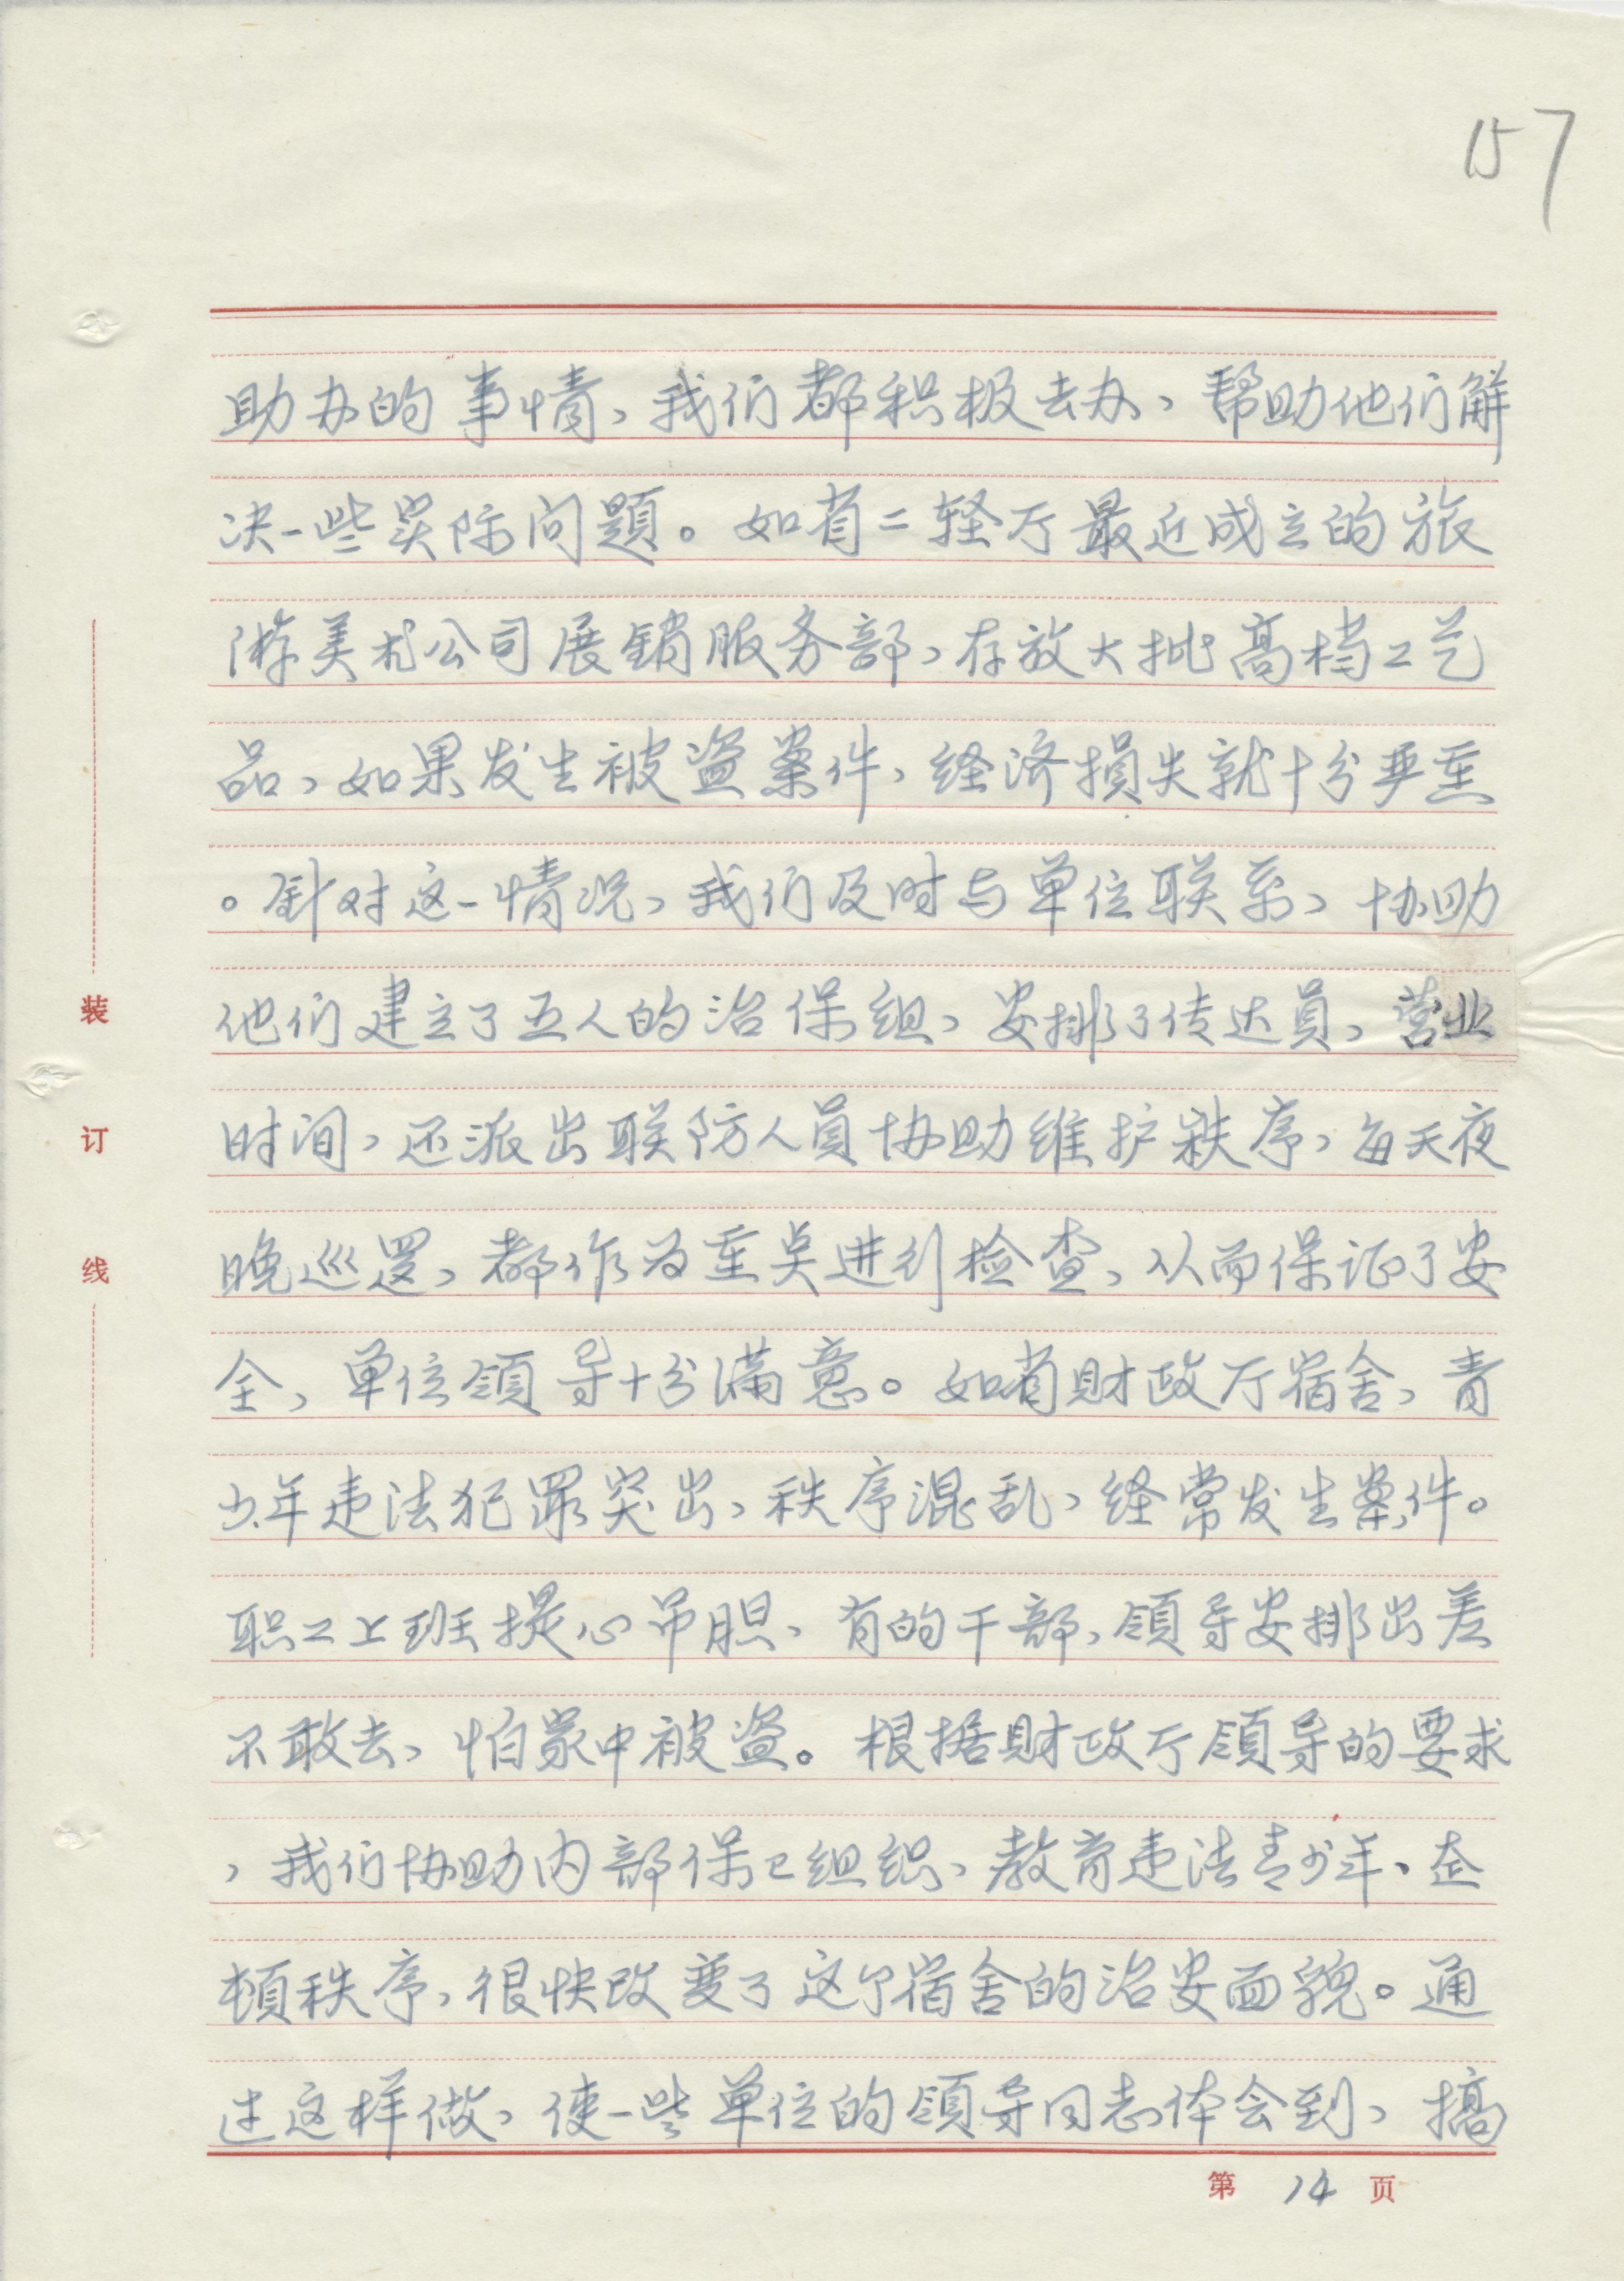 157
助办的事情，我们都积极去办，帮助他们解
决一些实际问题。如省二轻厅最近成立的旅
游美术公司展销服务部，存放大批高档工艺
品，如果发生被盗案件，经济损失就十分严重
。针对这一情况，我们及时与单位联系，协助
他们建立了五人的治保组，安排了传达员，营业
时间，还派出联防人员协助维护秩序，每天夜
晚巡逻，都作为重点进行检查，从而保证了安
全，单位领导十分满意。如省财政厅宿舍，青
少年违法犯罪突出，秩序混乱，经常发生案件。
职工上班提心吊胆，有的干部，领导安排出差
不敢去，怕家中被盗。根据财政厅领导的要求
，我们协助内部保卫组织，教育违法青少年、整
顿秩序，很快改变了这个宿舍的治安面貌。通
过这样做，使一些单位的领导同志体会到，搞
装
订
线
第 14 页